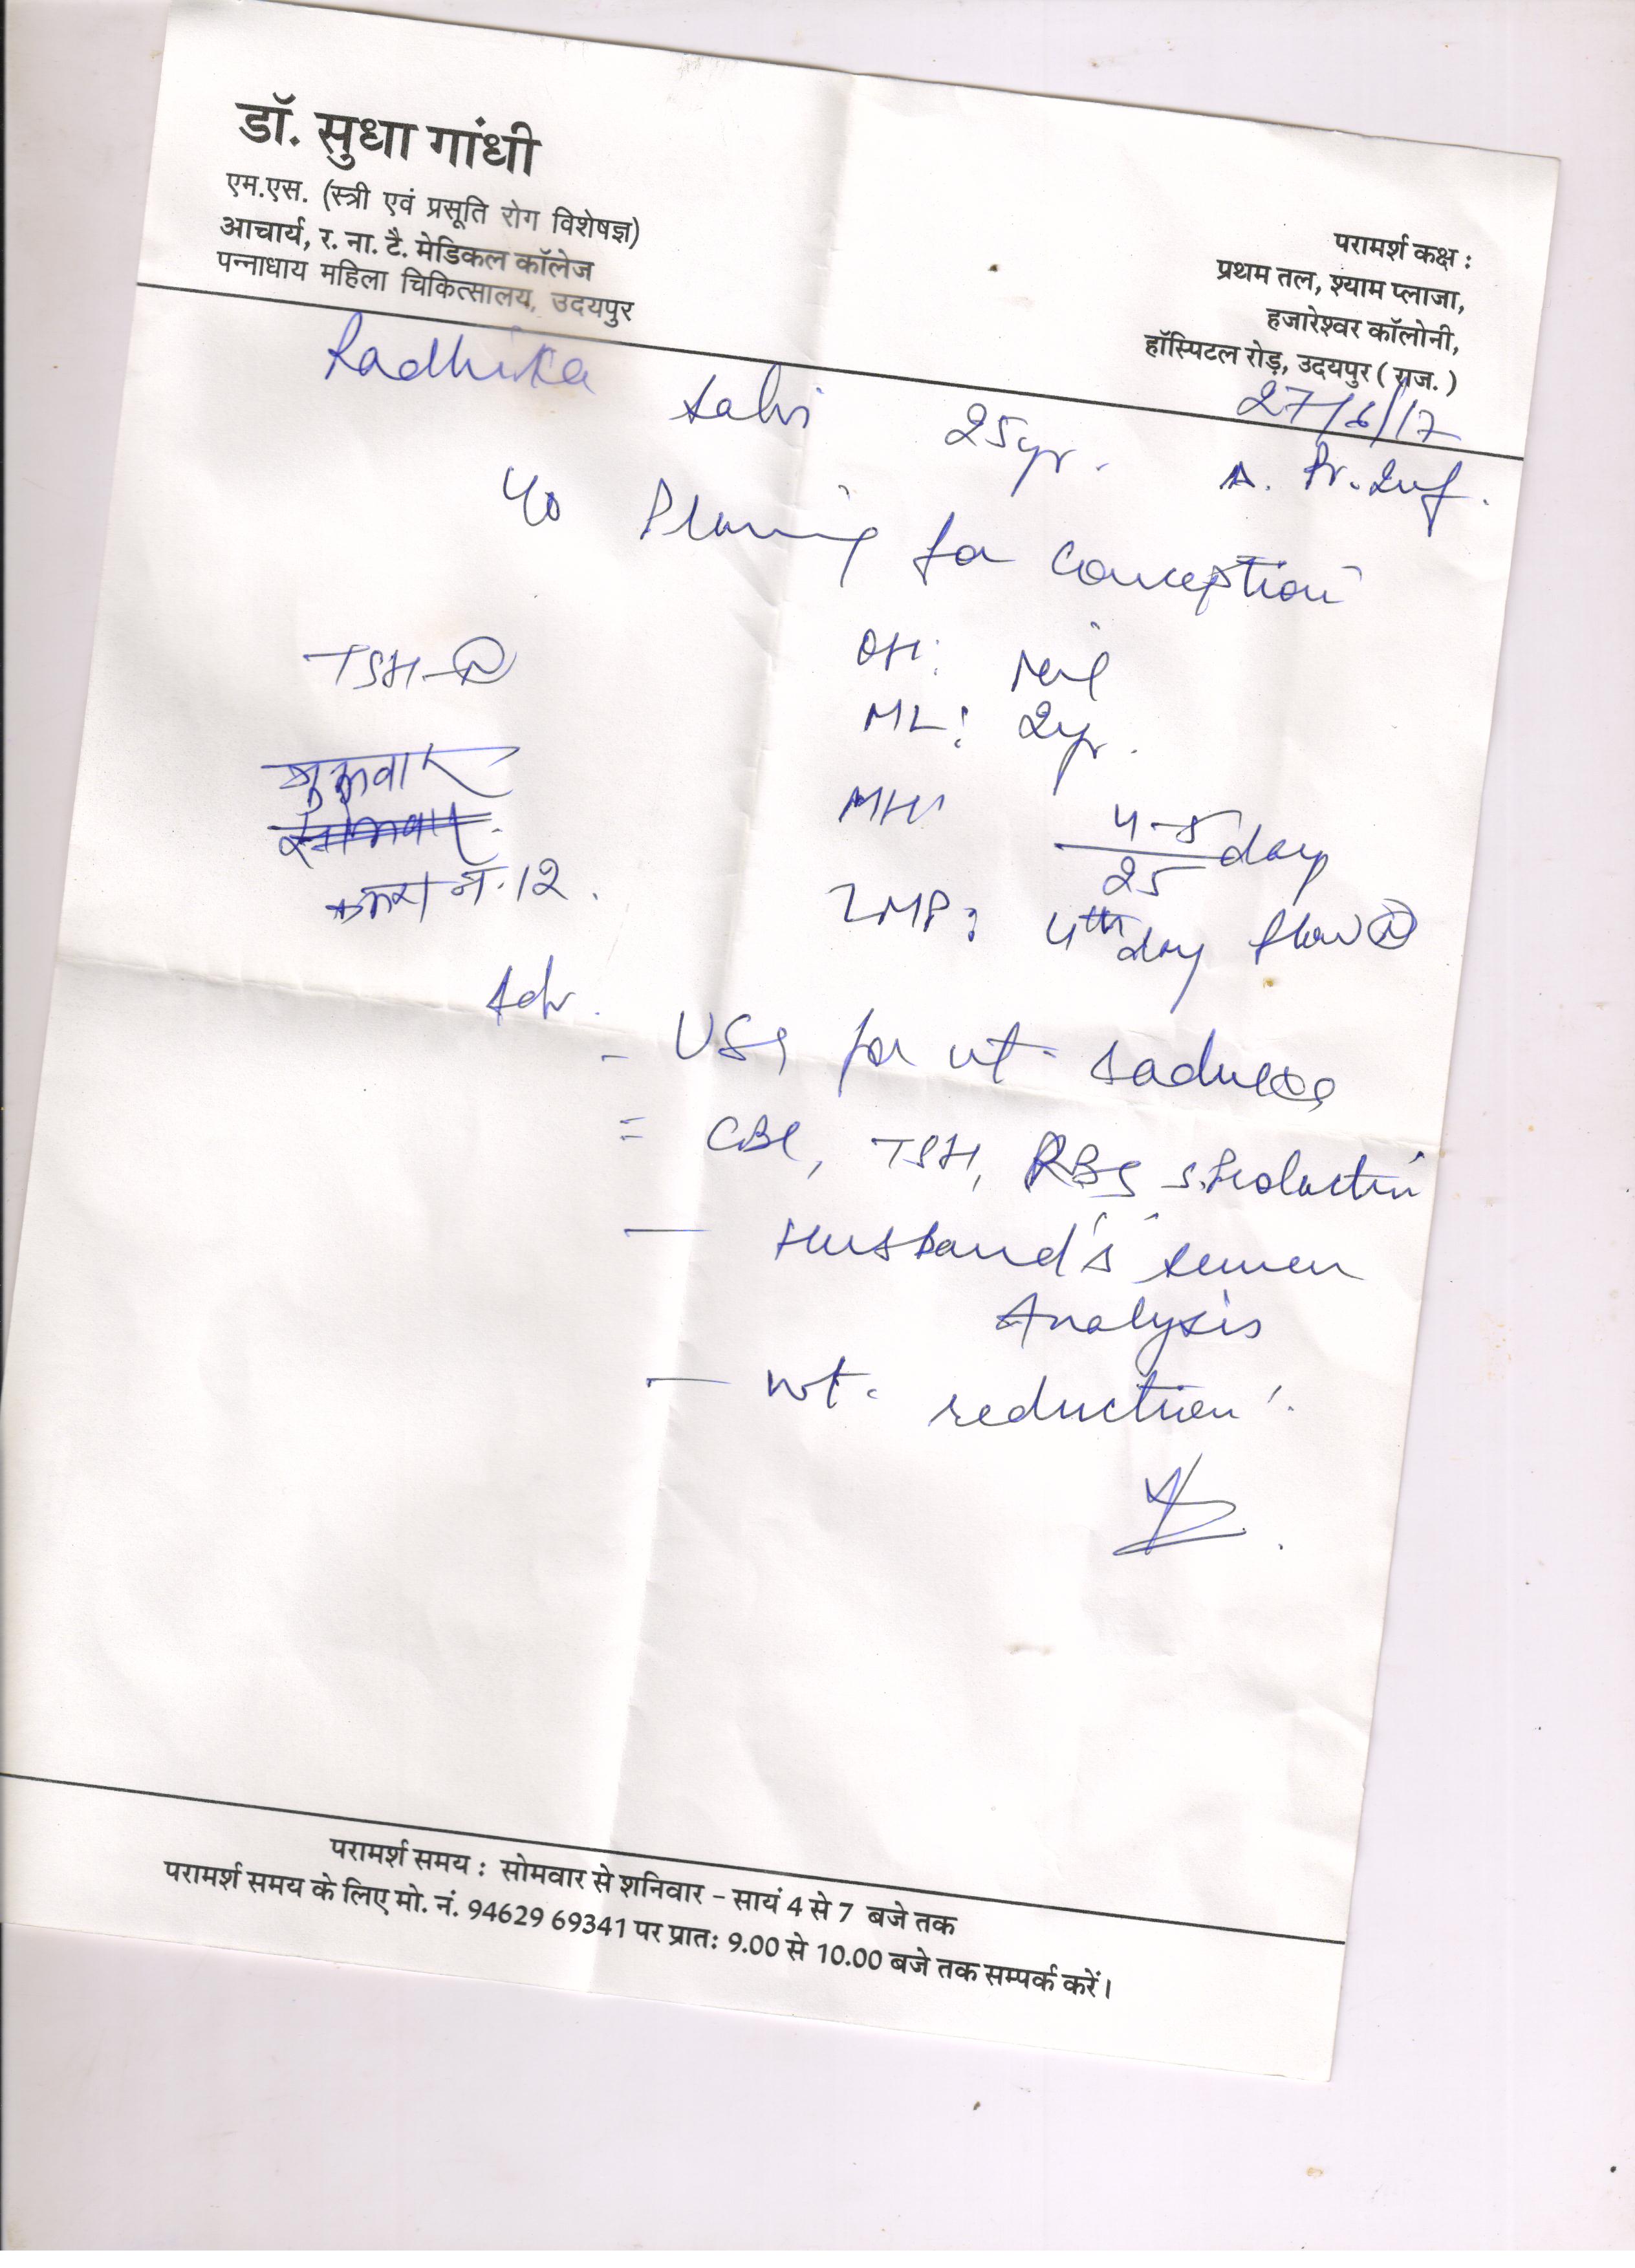 डॉ. सुधा गांधी
एम.एस. (स्त्री एवं प्रसूति रोग विशेषज्ञ)
आचार्य, र. ना. टै. मेडिकल कॉलेज
पन्नाधाय महिला चिकित्सालय, उदयपुर
परामर्श कक्ष :
प्रथम तल, श्याम प्लाजा,
हजारेश्वर कॉलोनी,
हॉस्पिटल रोड़, उदयपुर ( राज. )
27/6/17
Radhika Salvi 25yr.
A. Pr. Inf.
for conception
OH: Nil
ML: 2yr.
MH:
4-5 days
25
LMP: 4th day flow (N)
TSH-(N)
शुक्रवार
सोमवार
कमरा नं. 12.
Adv.
- USG for ut.
= CBC, TSH, RBS S. Prolactin
- Husband's semen
Analysis
- wt. reduction
परामर्श समय : सोमवार से शनिवार - सायं 4 से 7 बजे तक
परामर्श समय के लिए मो. नं. 94629 69341 पर प्रात: 9.00 से 10.00 बजे तक सम्पर्क करें।